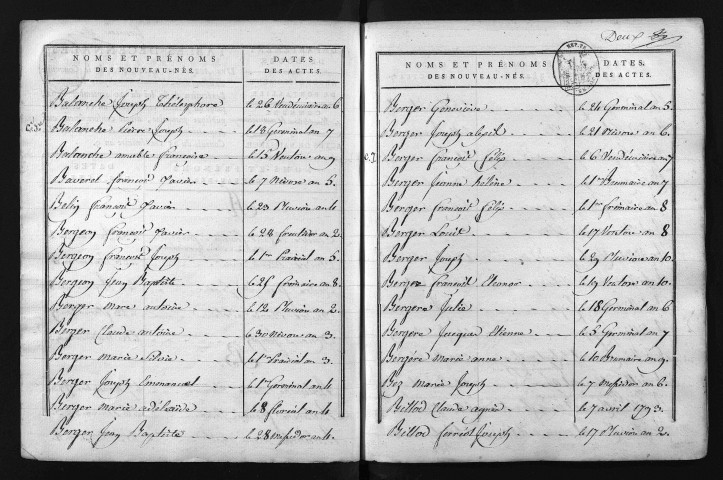 NOMS ET PRÉNOMS DES NOUVEAU-NÉS.
DATES DES ACTES.
Balanche Joseph Théléophore le 26 Vendémiaire an 6
Balanche Pierre Joseph le 18 Germinal an 7
Balanche amable Françoise le 15 Ventose an 9
Baverel françois Xavier le 7 Nivose an 5.
Belin françois Xavier le 23 Pluviose an 4
Bergeon François Xavier le 28 fructidor an 2.
Bergeon François Joseph le 1er Prairial an 5.
Bergeon Jean Baptiste le 25 frimaire an 8.
Berger marc antoine le 12 Pluviose an 2.
Berger Claude antoine le 30 Nivose an 3.
Berger marie Silvie le 1er Prairial an 3.
Berger Joseph Emmanuel le 1er Germinal an 4
Berger marie adélaïde le 8 floréal an 4
Berger Jean Baptiste le 28 messidor an 4.
Deux
NOMS ET PRÉNOMS DES NOUVEAU-NÉS.
DATES DES ACTES.
Berger Geneviève le 24 Germinal an 5.
Berger Joseph alexis le 21 Nivose an 6.
Berger François Félix le 6 Vendémiaire an 7
Berger Jeanne le 1er Brumaire an 7
Berger François Félix le 1er frimaire an 8
Berger Louis le 17 Ventose an 8
Berger Joseph le 29 Pluviose an 10.
Berger François Eléonor le 19 Ventose an 10.
Bergere Julie le 18 Germinal an 6
Bergere Jacques Etienne le 5 Germinal an 7
Bergere marie anne le 10 Brumaire an 9.
Bez marie Joseph le 7 messidor an 6.
Billod Claude agnès le 7 avril 1793.
Billod ferréol Joseph le 17 Pluviose an 2.